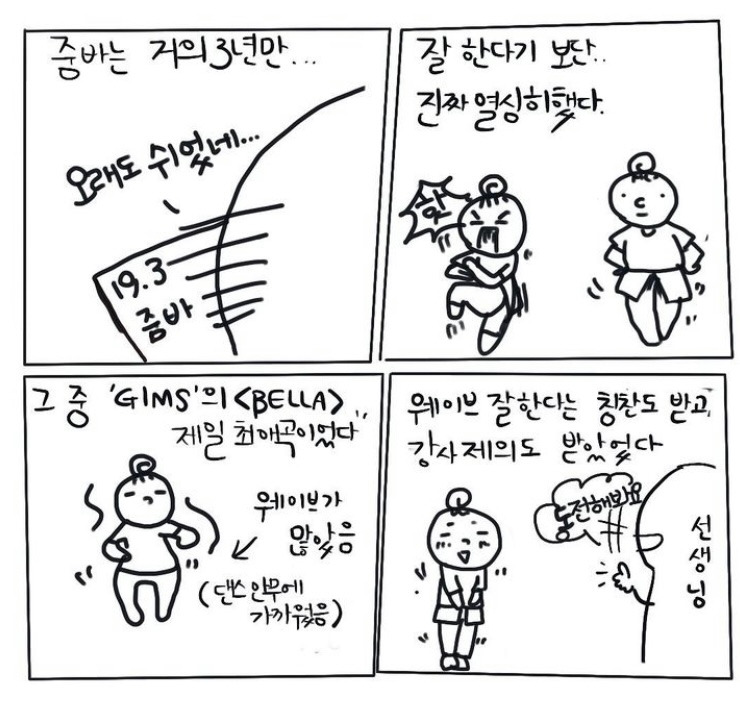 줌바는 거의 3년만...
오래도 쉬었네...
19.3
줌바
잘 한다기 보단..
진짜 열심히했다.
핫
그 중 'GIMS'의 <BELLA>..
제일 최애곡이었다
웨이브가
많았음
(댄스안무에
가까웠음)
웨이브 잘한다는 칭찬도 받고,
강사제의도 받았었다
도전해봐요
선생님